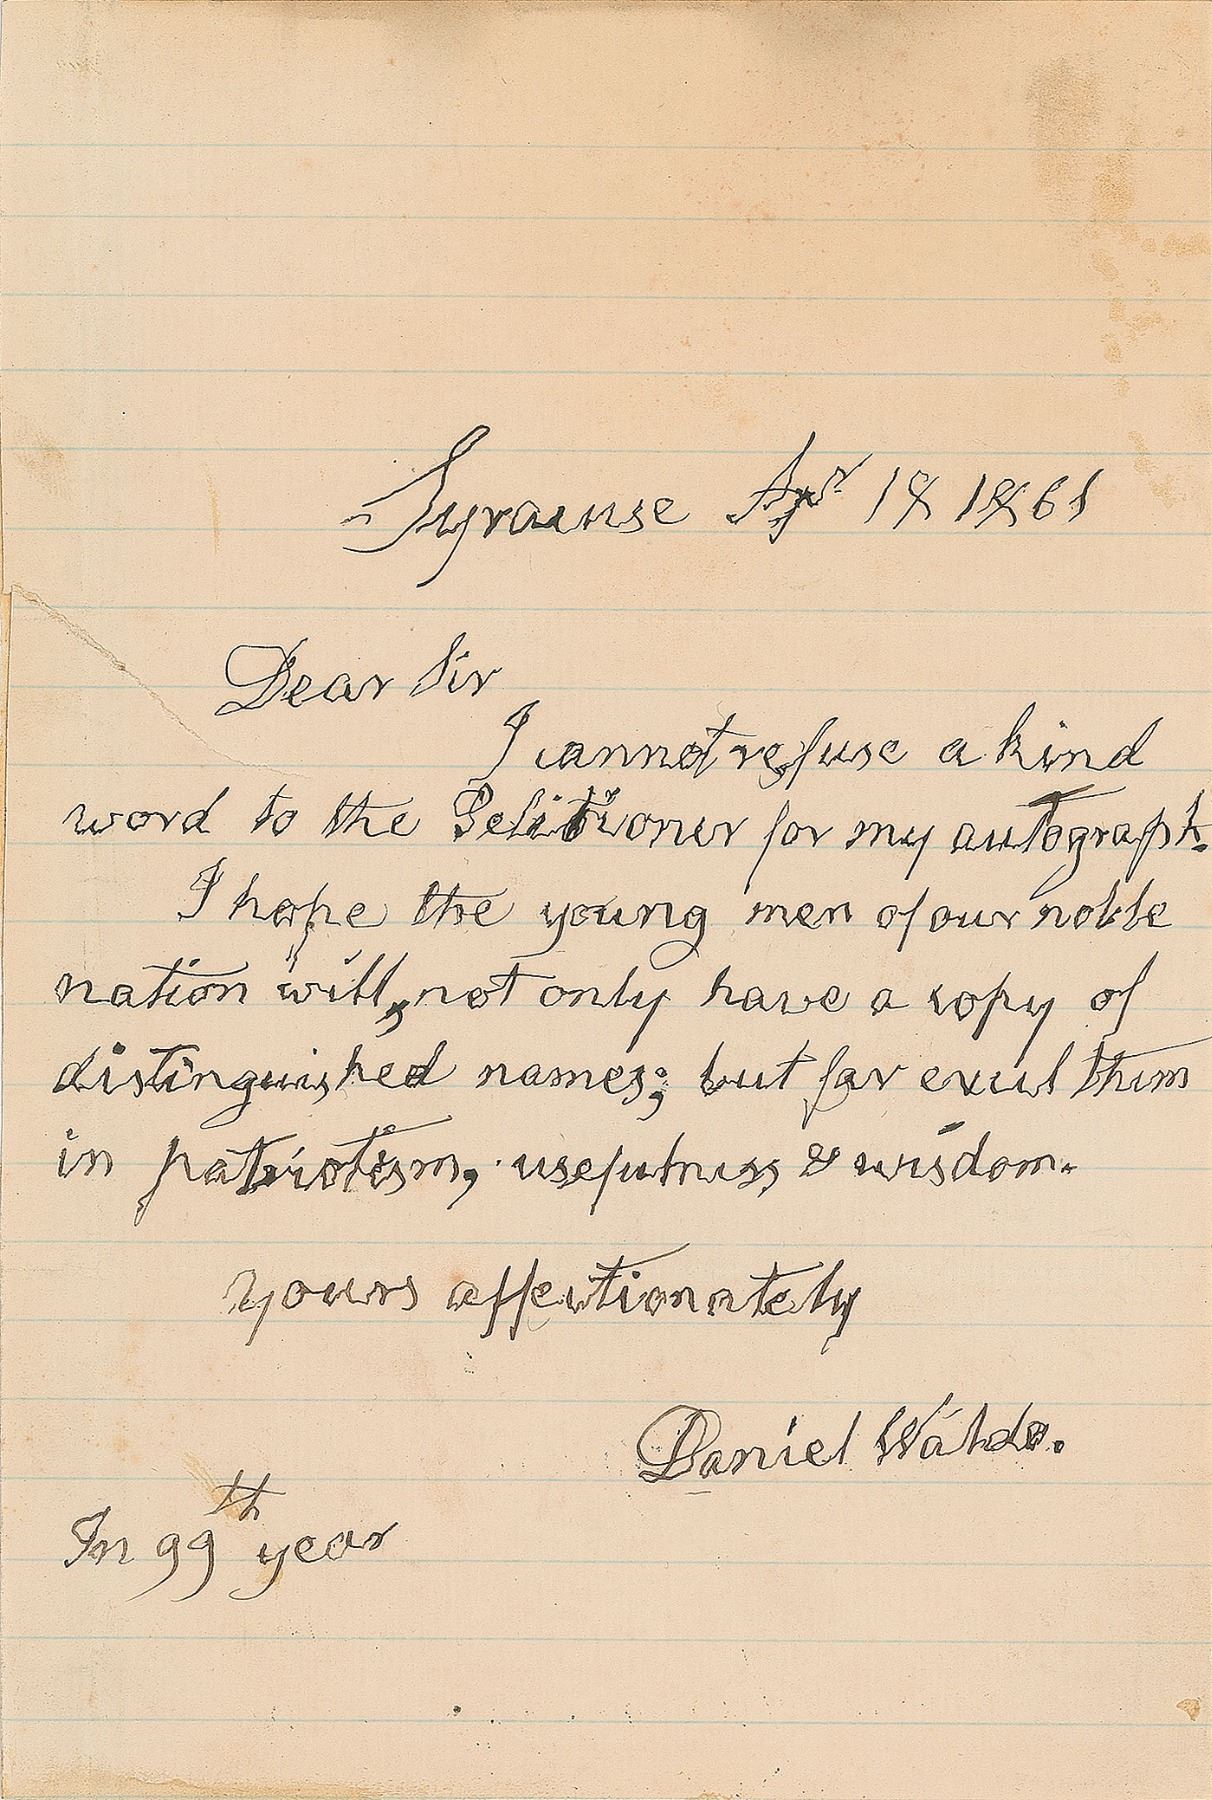 Syracuse Apr 18 1861
Dear Sir
I cannot refuse a kind
word to the Petitioner for my autograph.
I hope the young men of our noble
nation will, not only have a copy of
distinguished names; but far excel them
in patriotism, usefulness & wisdom.
yours affectionately
Daniel Waldo.
In 99th year